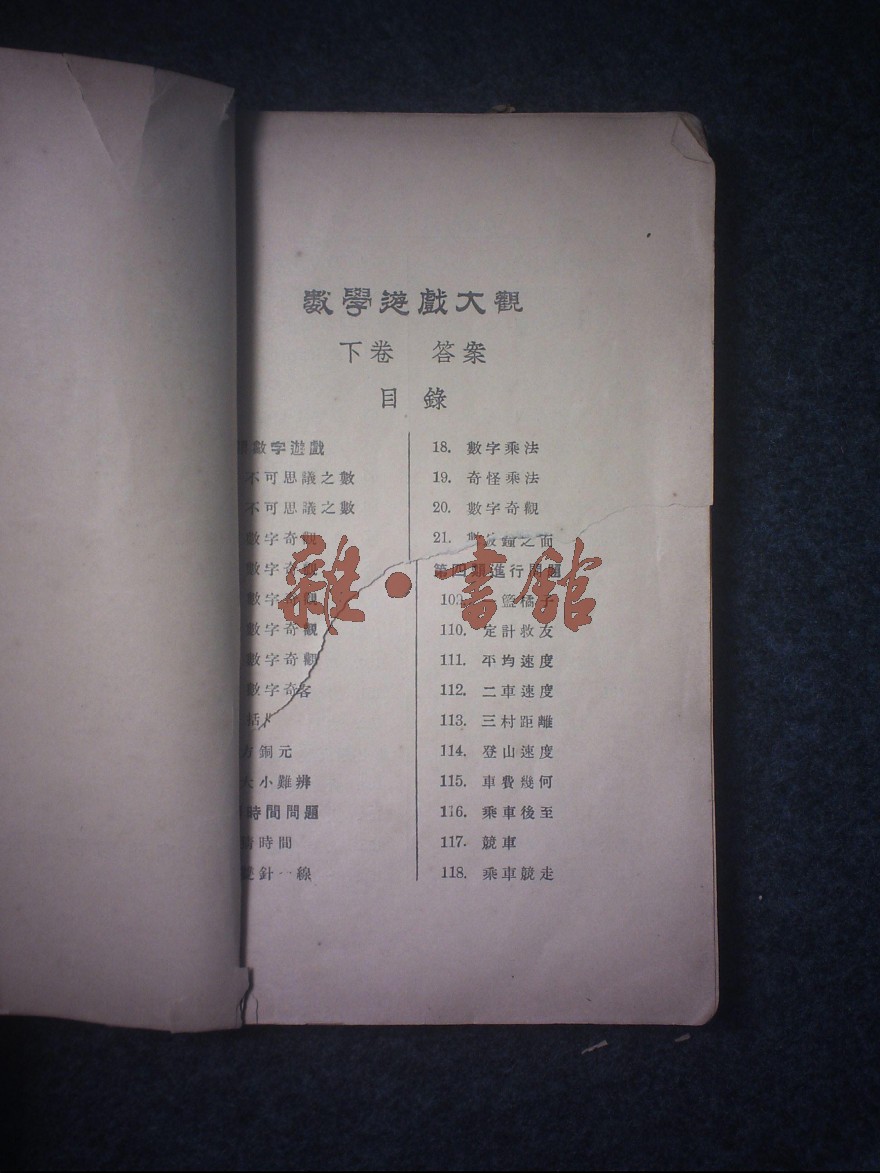 數學遊戲大觀
下卷 答案
目錄
數字遊戲
不可思議之數
不可思議之數
數字奇觀
數字奇觀
數字奇觀
數字奇觀
數字奇觀
數字奇客
括
方銅元
大小難辨
時間問題
時間
針一線
18. 數字乘法
19. 奇怪乘法
20. 數字奇觀
21. 數 鐘之面
第四類進行問題
109. 一籃橘子
110. 定計救友
111. 平均速度
112. 二車速度
113. 三村距離
114. 登山速度
115. 車費幾何
116. 乘車後至
117. 競車
118. 乘車競走
雜·書館